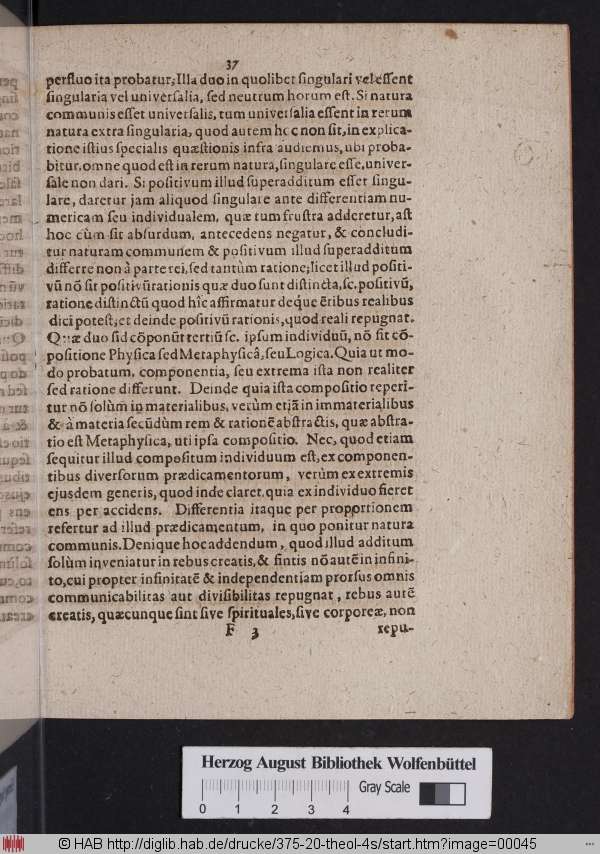 37
perfluo ita probatur; Illa duo in quolibet singulari vel essent
singularia vel universalia, sed neutrum horum est. Si natura
communis esset universalis, tum universalia essent in rerum
natura extra singularia, quod autem hoc non sit, in explica-
tione istius specialis quæstionis infra audiemus, ubi proba-
bitur, omne quod est in rerum natura, singulare esse, univer-
sale non dari. Si positivum illud superadditum esset singu-
lare, daretur jam aliquod singulare ante differentiam nu-
mericam seu individualem, quæ tum frustra adderetur, ast
hoc cùm sit absurdum, antecedens negatur, & concludi-
tur naturam communem & positivum illud superadditum
differre non à parte rei, sed tantùm ratione, licet illud positi-
vũ nõ sit positivũ rationis quæ duo sunt distincta, sc. positivũ,
ratione distinctũ quod hîc affirmatur deq́ue ẽtibus realibus
dici potest, et deinde positivũ rationis, quod reali repugnat.
Quæ duo sid cõponũt tertiũ sc. ipsum individuũ, nõ sit cõ-
positione Physica sed Metaphysicâ, seu Logica. Quia ut mo-
do probatum, componentia, seu extrema ista non realiter
sed ratione differunt. Deinde quia ista compositio reperi-
tur nõ solùm in materialibus, verùm etiã in immaterialibus
& à materia secũdùm rem & rationẽ abstractis, quæ abstra-
tio est Metaphysica, uti ipsa compositio. Nec, quod etiam
sequitur illud compositum individuum est, ex componen-
tibus diversorum prædicamentorum, verùm ex extremis
ejusdem generis, quod inde claret, quia ex individuo fieret
ens per accidens. Differentia itaque per proportionem
refertur ad illud prædicamentum, in quo ponitur natura
communis. Denique hoc addendum, quod illud additum
solùm inveniatur in rebus creatis, & fintis nõ autẽ in infini-
to, cui propter infinitatẽ & independentiam prorsus omnis
communicabilitas aut divisibilitas repugnat, rebus autẽ
creatis, quæcunque sint sive spirituales, sive corporeæ, non
F 3 repu-
Herzog August Bibliothek Wolfenbüttel
0 1 2 3 4 Gray Scale
© HAB http://diglib.hab.de/drucke/375-20-theol-4s/start.htm?image=00045